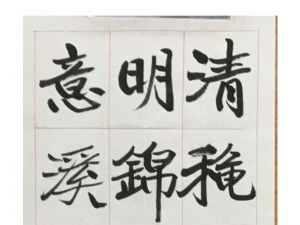 清
明錦
意溪